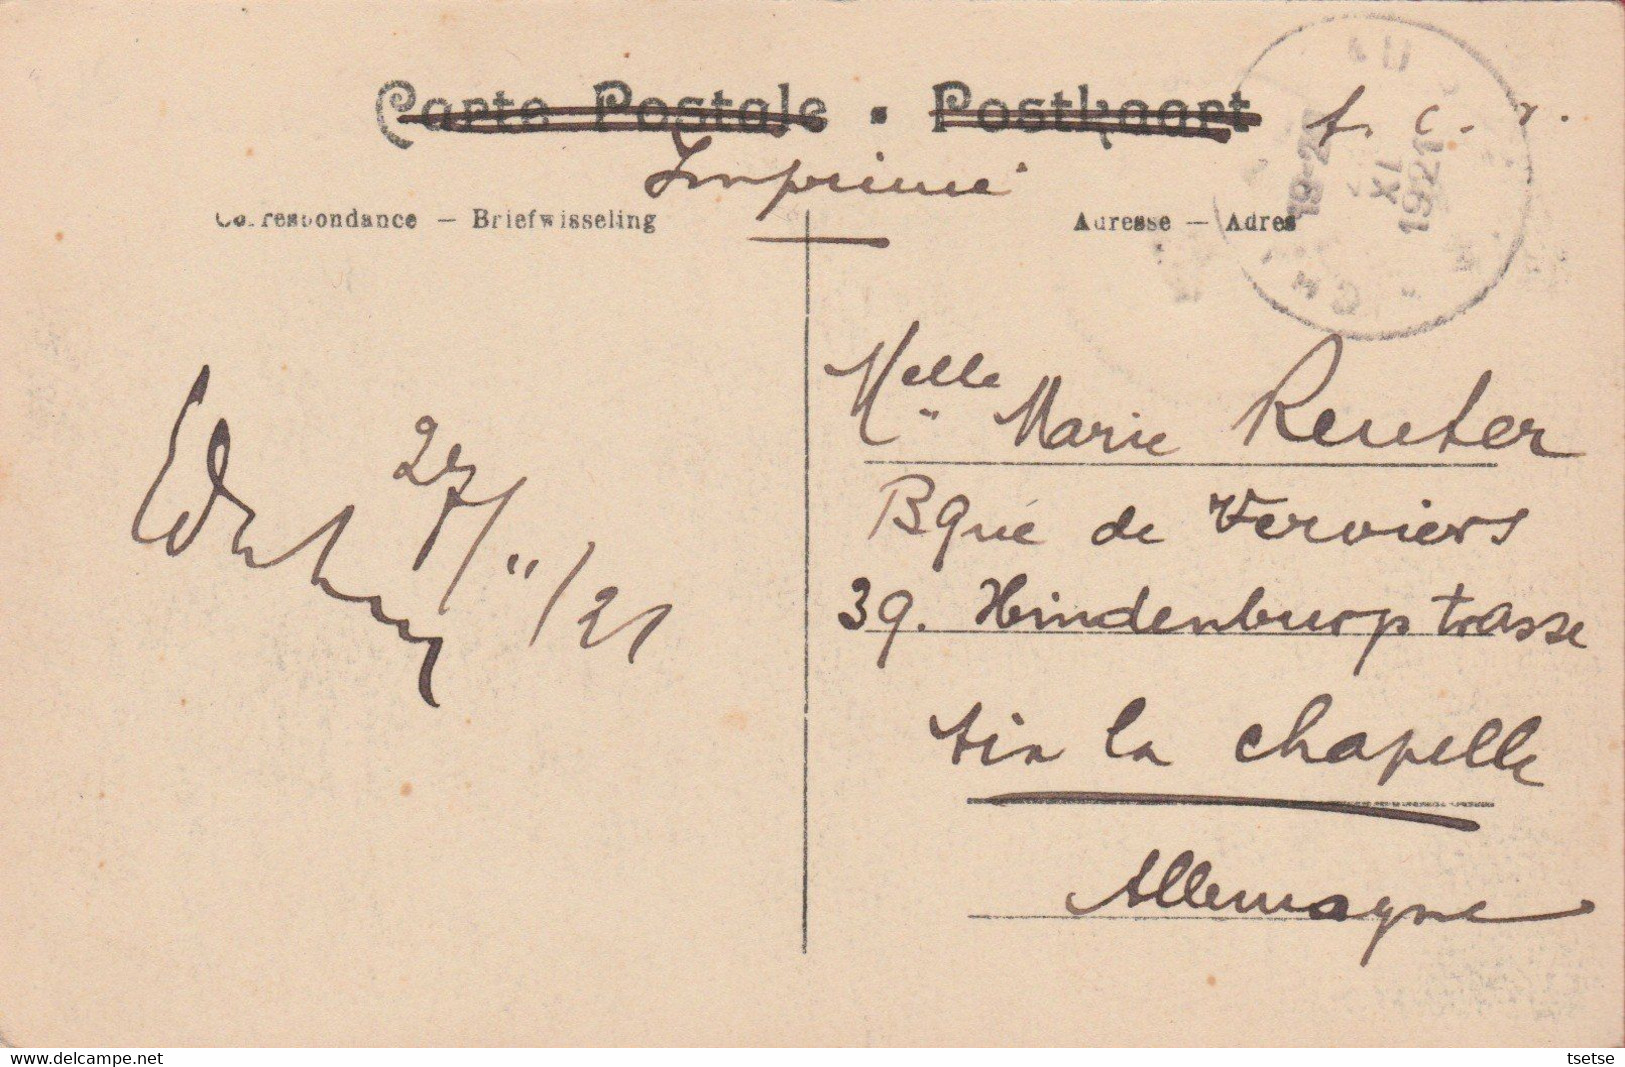 Carte Postale . Postkaart
f. c. v.
Imprimé
Correspondance — Briefwisseling
Adresse — Adres
19-2
XI
1921
Melle Marie Reuter
Bque de Verviers
39. Hindenburgstrasse
Aix la Chapelle
Allemagne
27/11/21
www.delcampe.net
tsetse